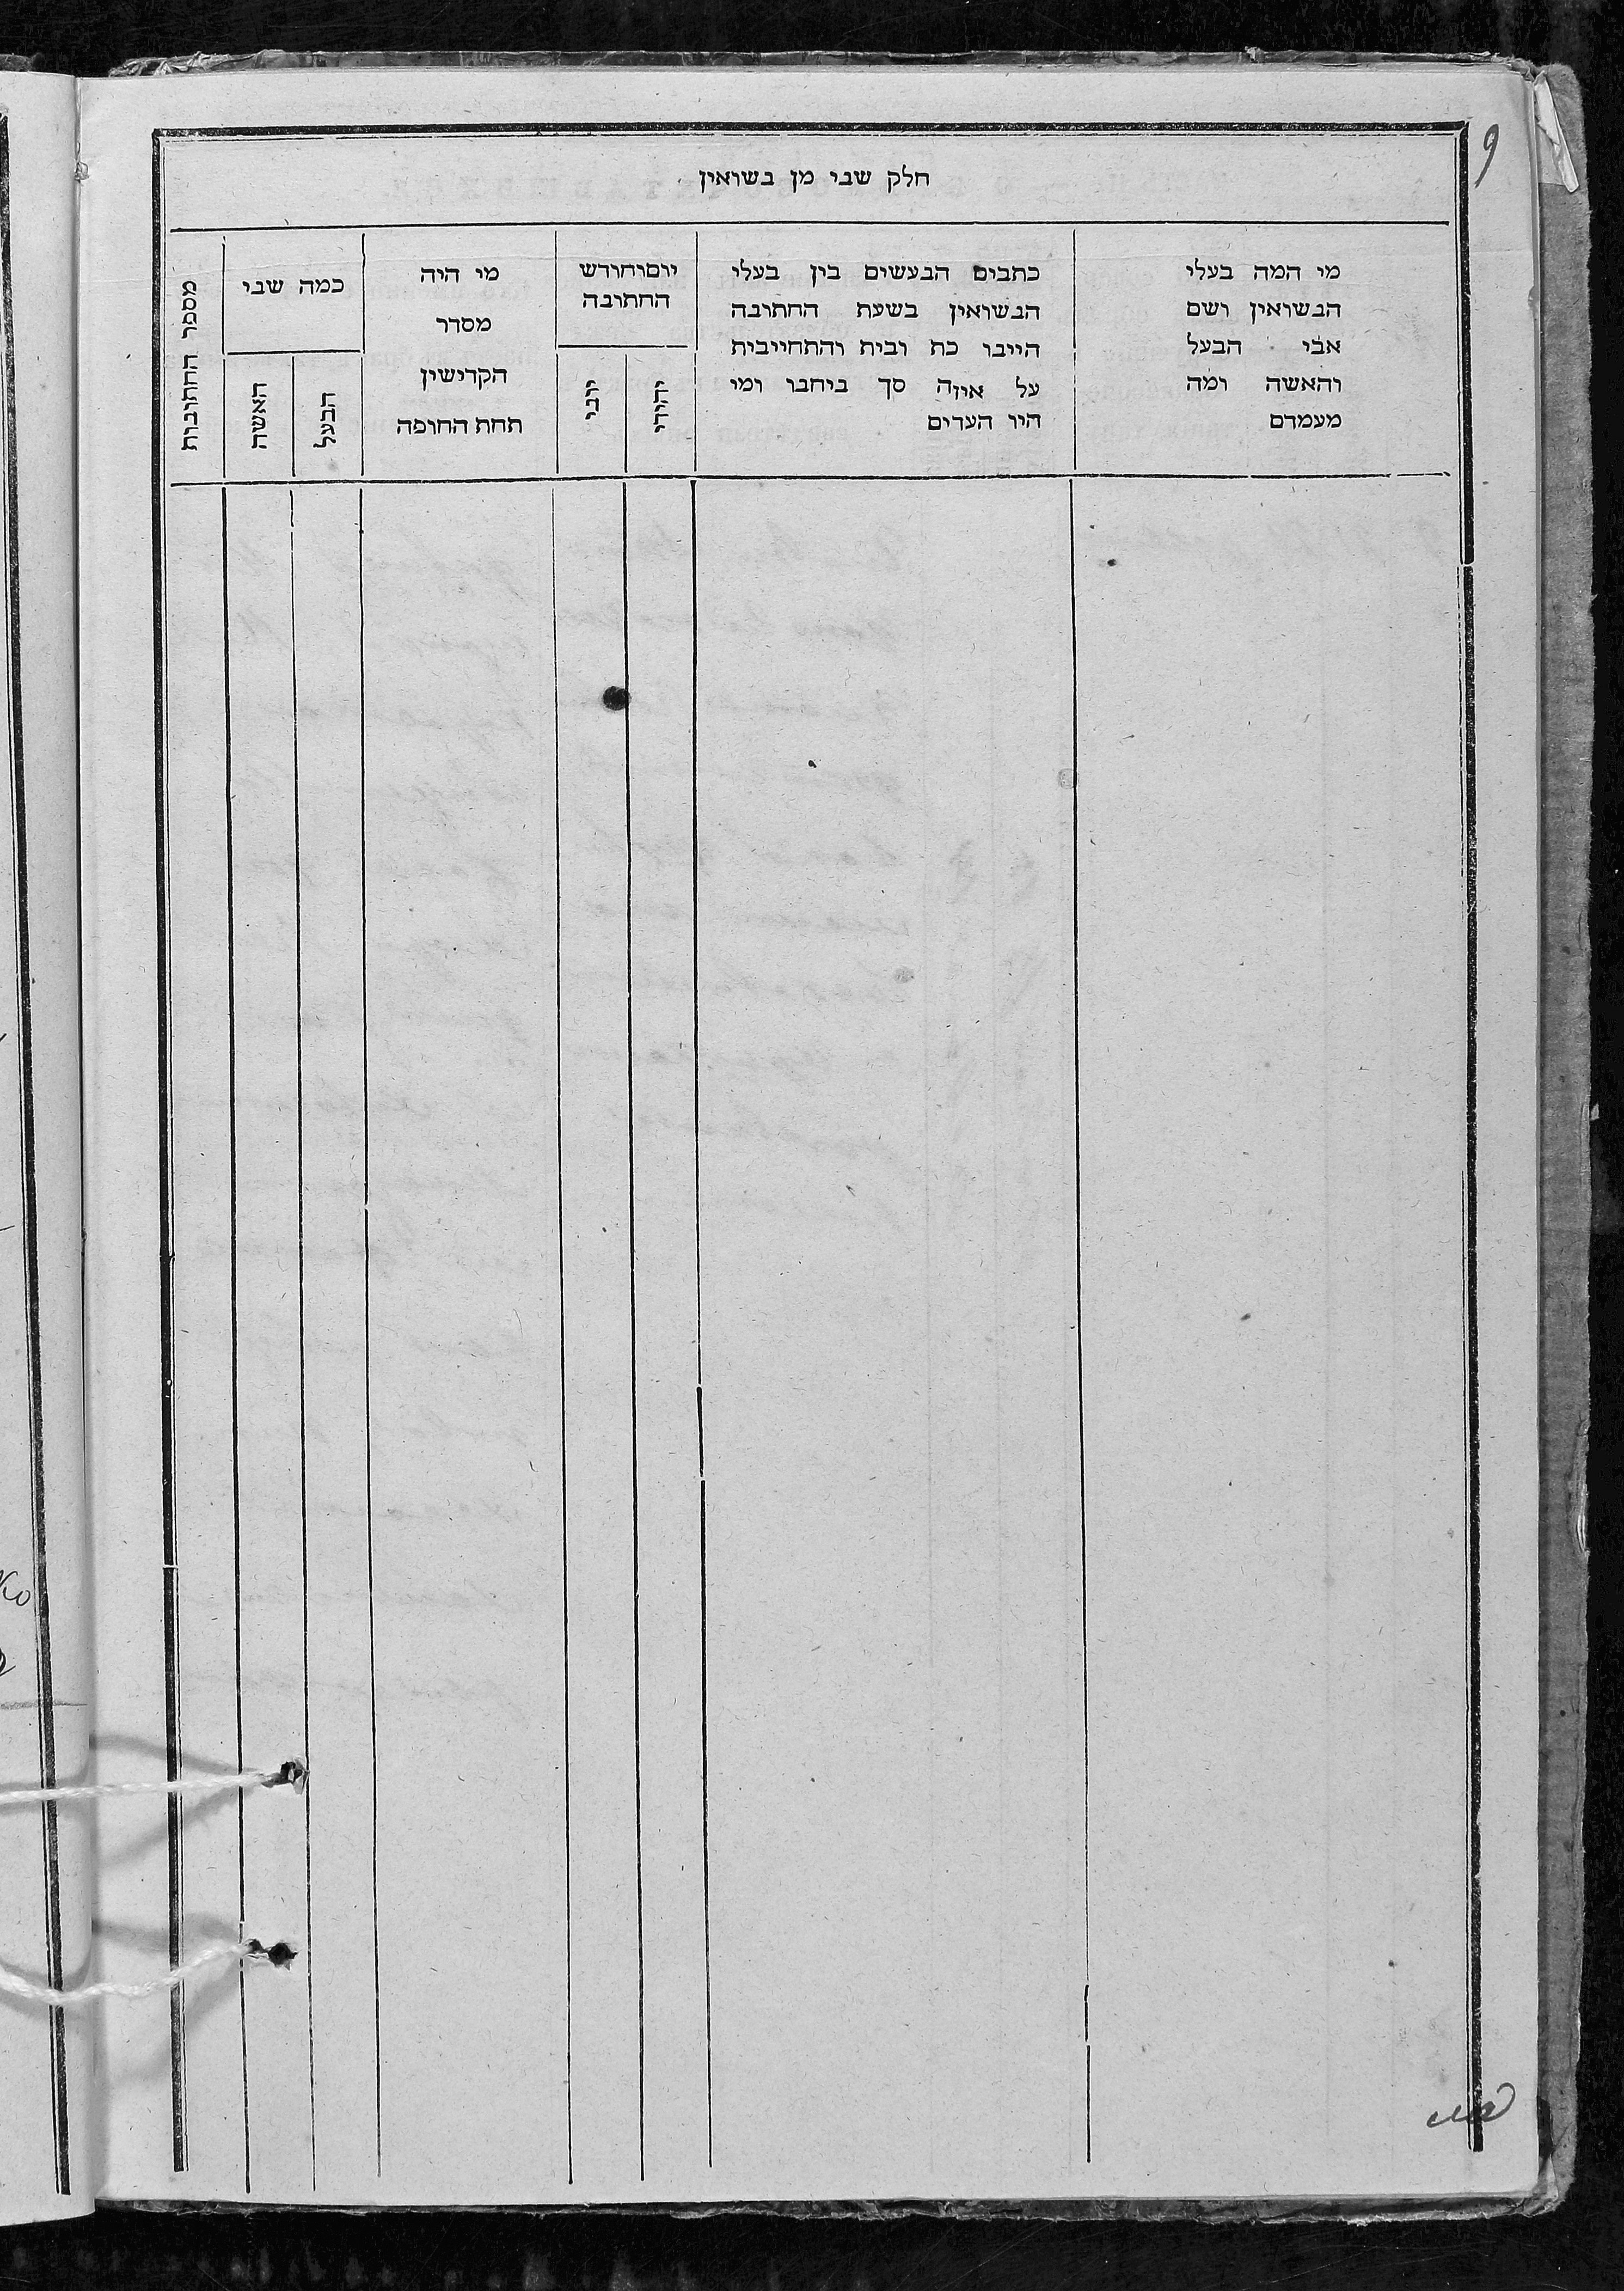 9
חלק שבי מן בשואין
מי המה בעלי
הבשואין ושם
אבי הבעל
והאשה ומה
מעמדם
כתבים הבעשים בין בעלי
הבשואין בשעת החתובה
הייבו כת ובית והתחייבית
על איזה סך ביחבו ומי
היו העדים
יום וחודש
החתובה
יהודי
יובי
מי היה
מסדר
הקדישין
תחת החופה
כמה שבי
הבעל
האשה
מספר החתובות